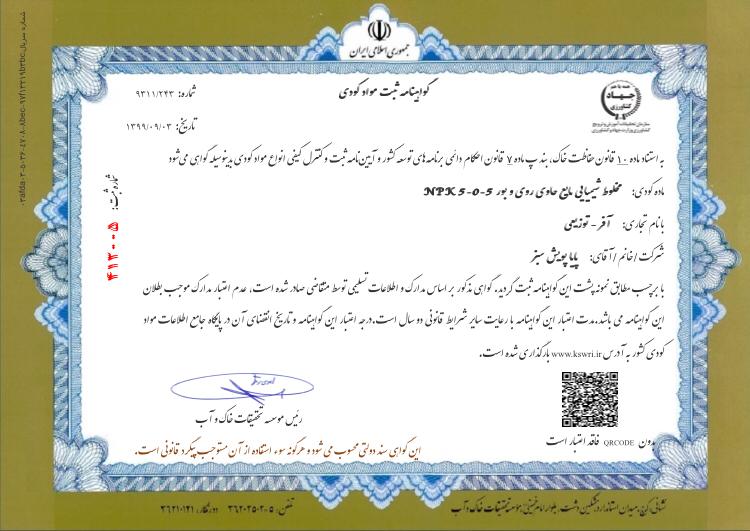 جمهوری اسلامی ایران
گواهینامه ثبت مواد کودی
شماره: ۹۳۱۱/۲۴۳
تاریخ: ۱۳۹۹/۰۹/۰۳
جهاد
کشاورزی
سازمان تحقیقات، آموزش و ترویج
کشاورزی وزارت جهاد کشاورزی
به استناد ماده ۱۰ قانون حفاظت خاک، بند پ ماده ۷ قانون احکام دائمی برنامه‌های توسعه کشور و آیین‌نامه ثبت و کنترل کیفی انواع مواد کودی بدینوسیله گواهی می‌شود
ماده کودی: مخلوط شیمیایی مایع حاوی روی و بور NPK 5-0-5
با نام تجاری: آفر - توزیعی
شرکت / خانم / آقای: پایا پویش سبز
با برچسب مطابق نمونه پشت این گواهینامه ثبت گردید. گواهی مذکور بر اساس مدارک و اطلاعات تسلیمی توسط متقاضی صادر شده است. عدم اعتبار مدارک موجب بطلان
این گواهینامه می باشد. مدت اعتبار این گواهینامه با رعایت سایر شرایط قانونی دو سال است. درجه اعتبار این گواهینامه و تاریخ انقضای آن در پایگاه جامع اطلاعات مواد
کودی کشور به آدرس www.kswri.ir بارگذاری شده است.
شماره ثبت:
۴۱۳۰۰۵
رئیس موسسه تحقیقات خاک و آب
بدون QRCODE فاقد اعتبار است
این گواهی سند دولتی محسوب می‌شود و هرگونه سوء استفاده از آن مستوجب پیگرد قانونی است.
نشانی: کرج، میدان استاندارد، مشکین دشت، بلوار امام خمینی، موسسه تحقیقات خاک و آب
تلفن: ۵-۳۶۲۰۲۵۰۲
دورنگار: ۳۶۲۱۰۱۲۱
شماره سریال: